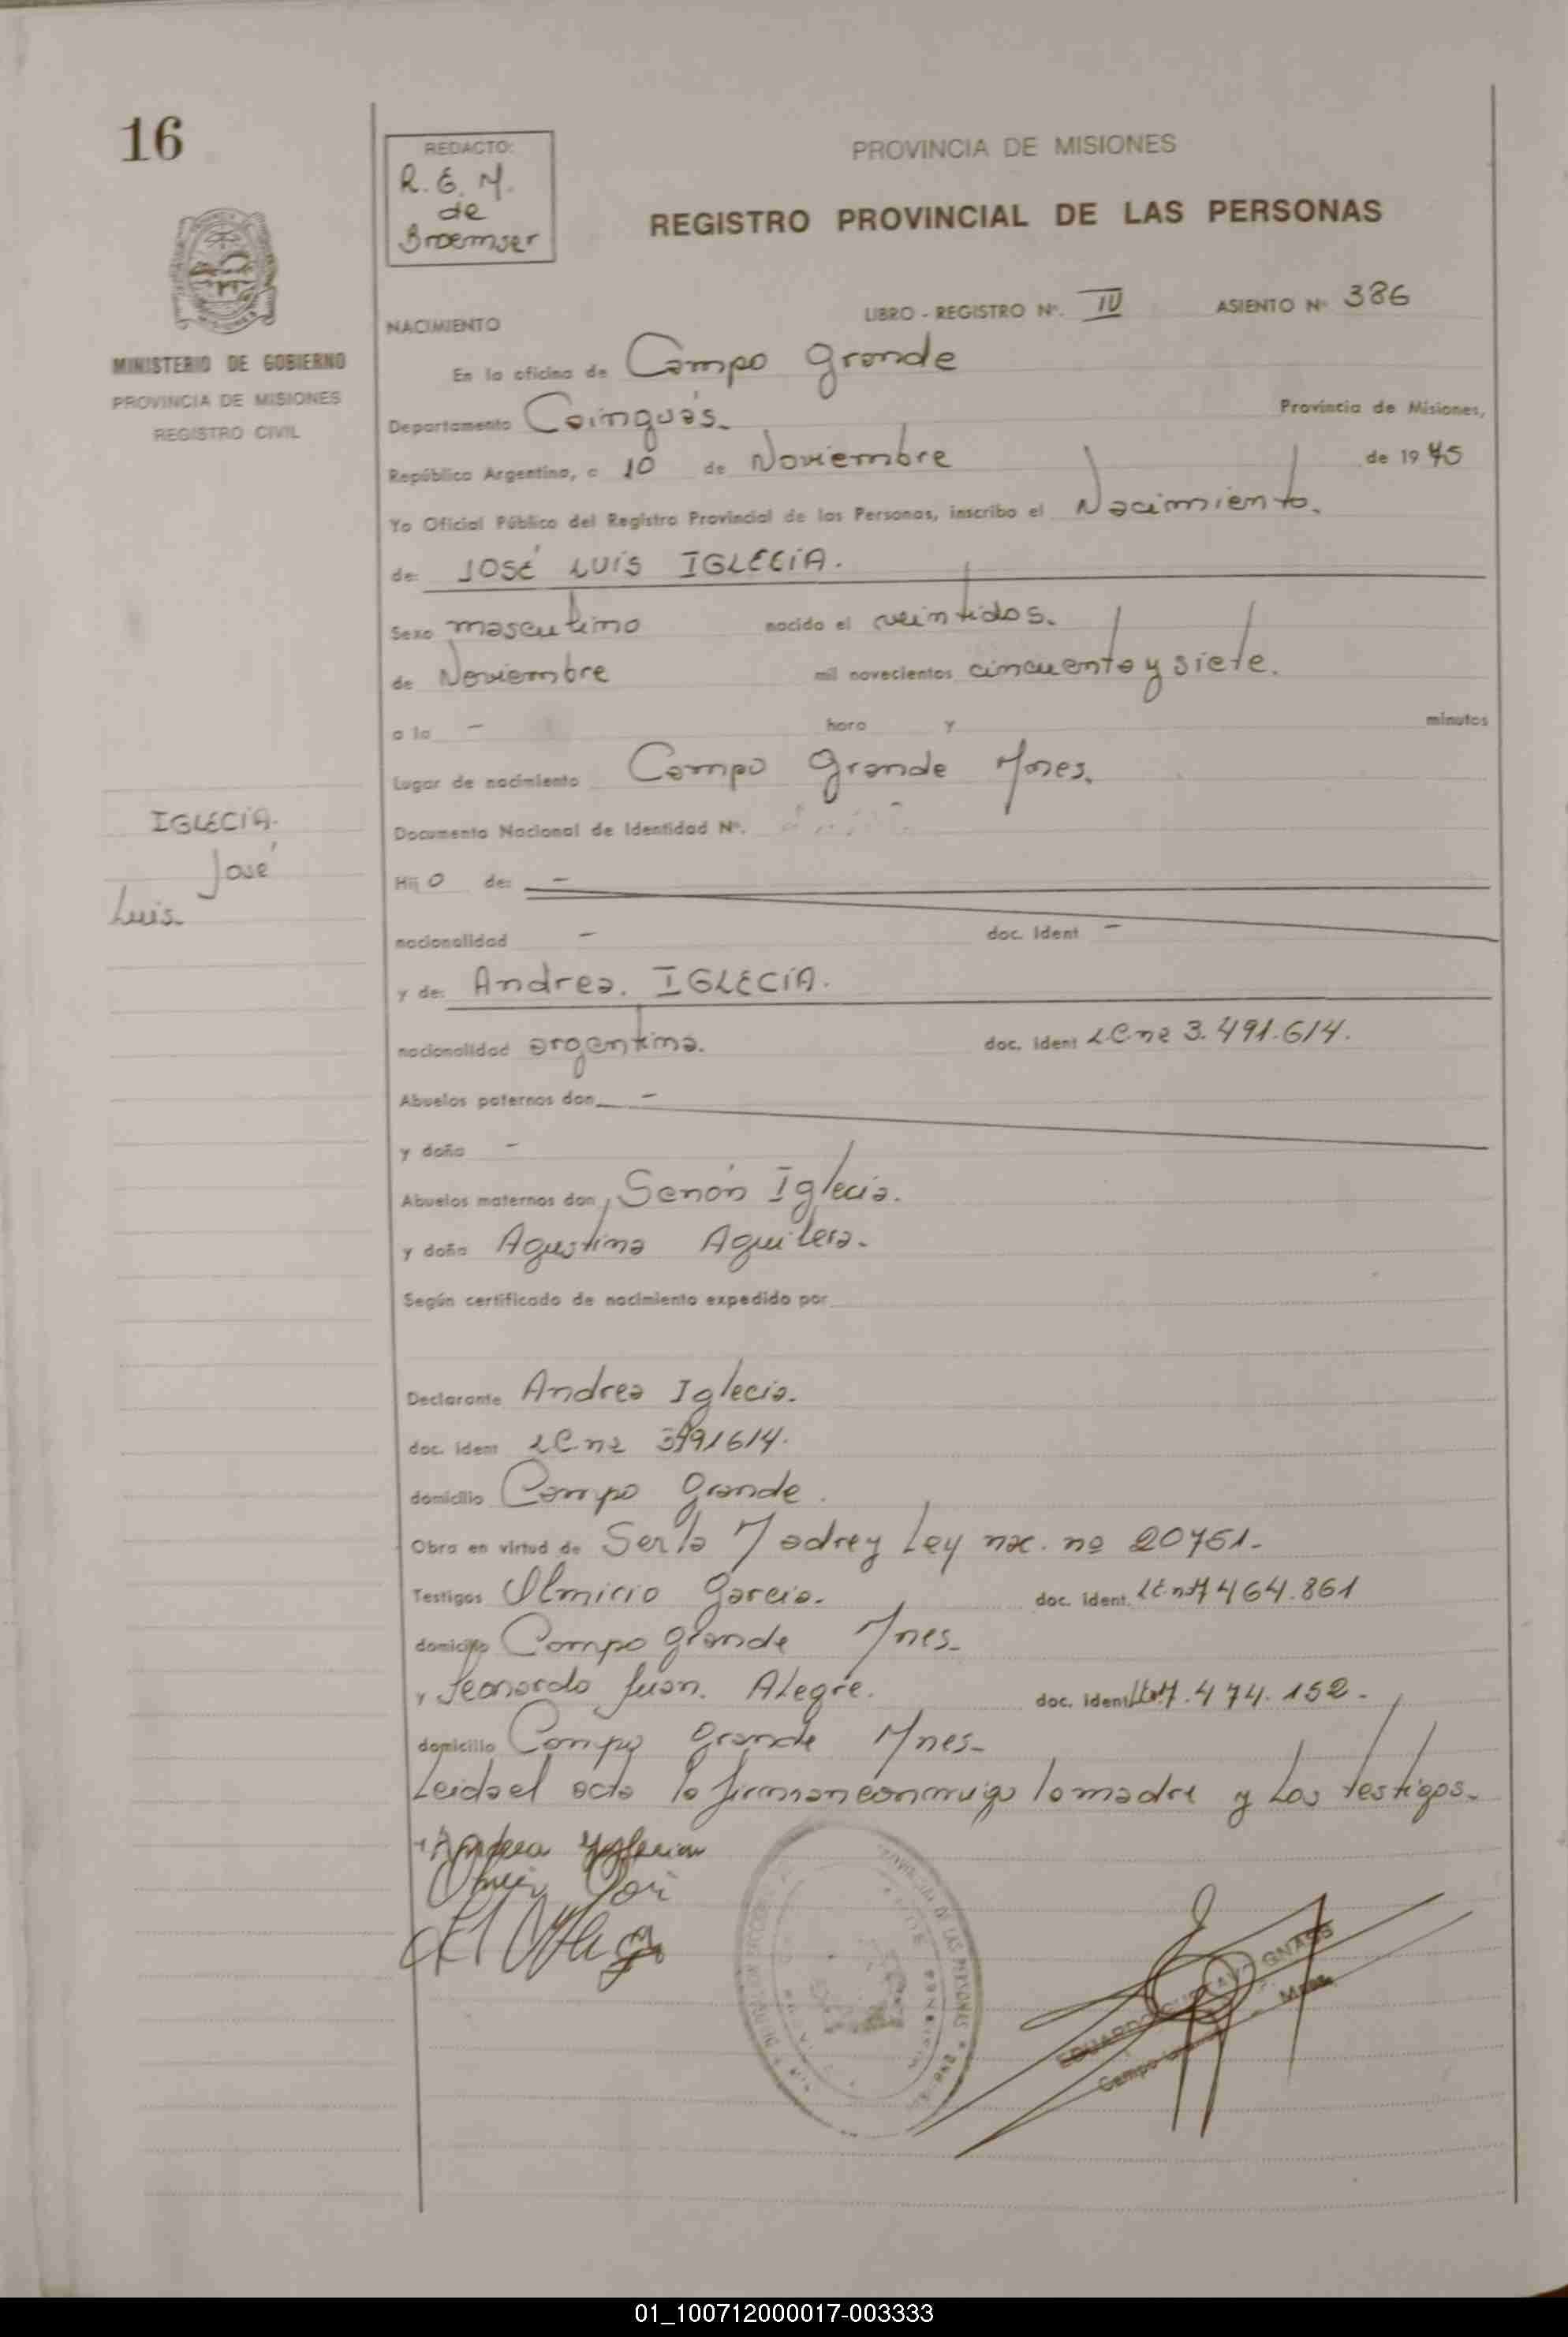 16
REDACTO:
R. E. M.
de
Broemser
PROVINCIA DE MISIONES
REGISTRO PROVINCIAL DE LAS PERSONAS
MINISTERIO DE GOBIERNO
PROVINCIA DE MISIONES
REGISTRO CIVIL
NACIMIENTO
LIBRO - REGISTRO Nº. IV ASIENTO Nº 386
En la oficina de Campo Grande
Departamento Cainguás. Provincia de Misiones,
República Argentina, a 10 de Noviembre de 1975
Yo Oficial Público del Registro Provincial de las Personas, inscribo el Nacimiento.
de: JOSÉ LUIS IGLECIA.
Sexo masculino nacido el veintidos.
de Noviembre mil novecientos cincuenta y siete.
a la - hora y minutos
Lugar de nacimiento Campo Grande Mnes.
Documento Nacional de Identidad Nº.
IGLECIA.
José
Luis.
Hij o de: -
nacionalidad - doc. Ident -
y de: Andrea. IGLECIA.
nacionalidad argentina. doc. ident L.C. nº 3.491.614.
Abuelos paternos don -
y doña -
Abuelos maternos don, Senón Iglecia.
y doña Agustina Aguilera.
Según certificado de nacimiento expedido por
Declarante Andrea Iglecia.
doc. ident LC nº 3491614.
domicilio Campo Grande.
Obra en virtud de Ser la Madre y Ley nac. nº 20751.
Testigos Garcia. doc. ident. 464.861
domicilio Campo Grande Mnes.
y Leonardo Juan. Alegre. doc. ident 7.474.152.
domicilio Campo Grande Mnes.
Leida el acta la firman conmigo la madre y los testigos.
Andrea
DE LAS PERSONAS
EDUARDO GNASS
Campo Mnes.
01_100712000017-003333